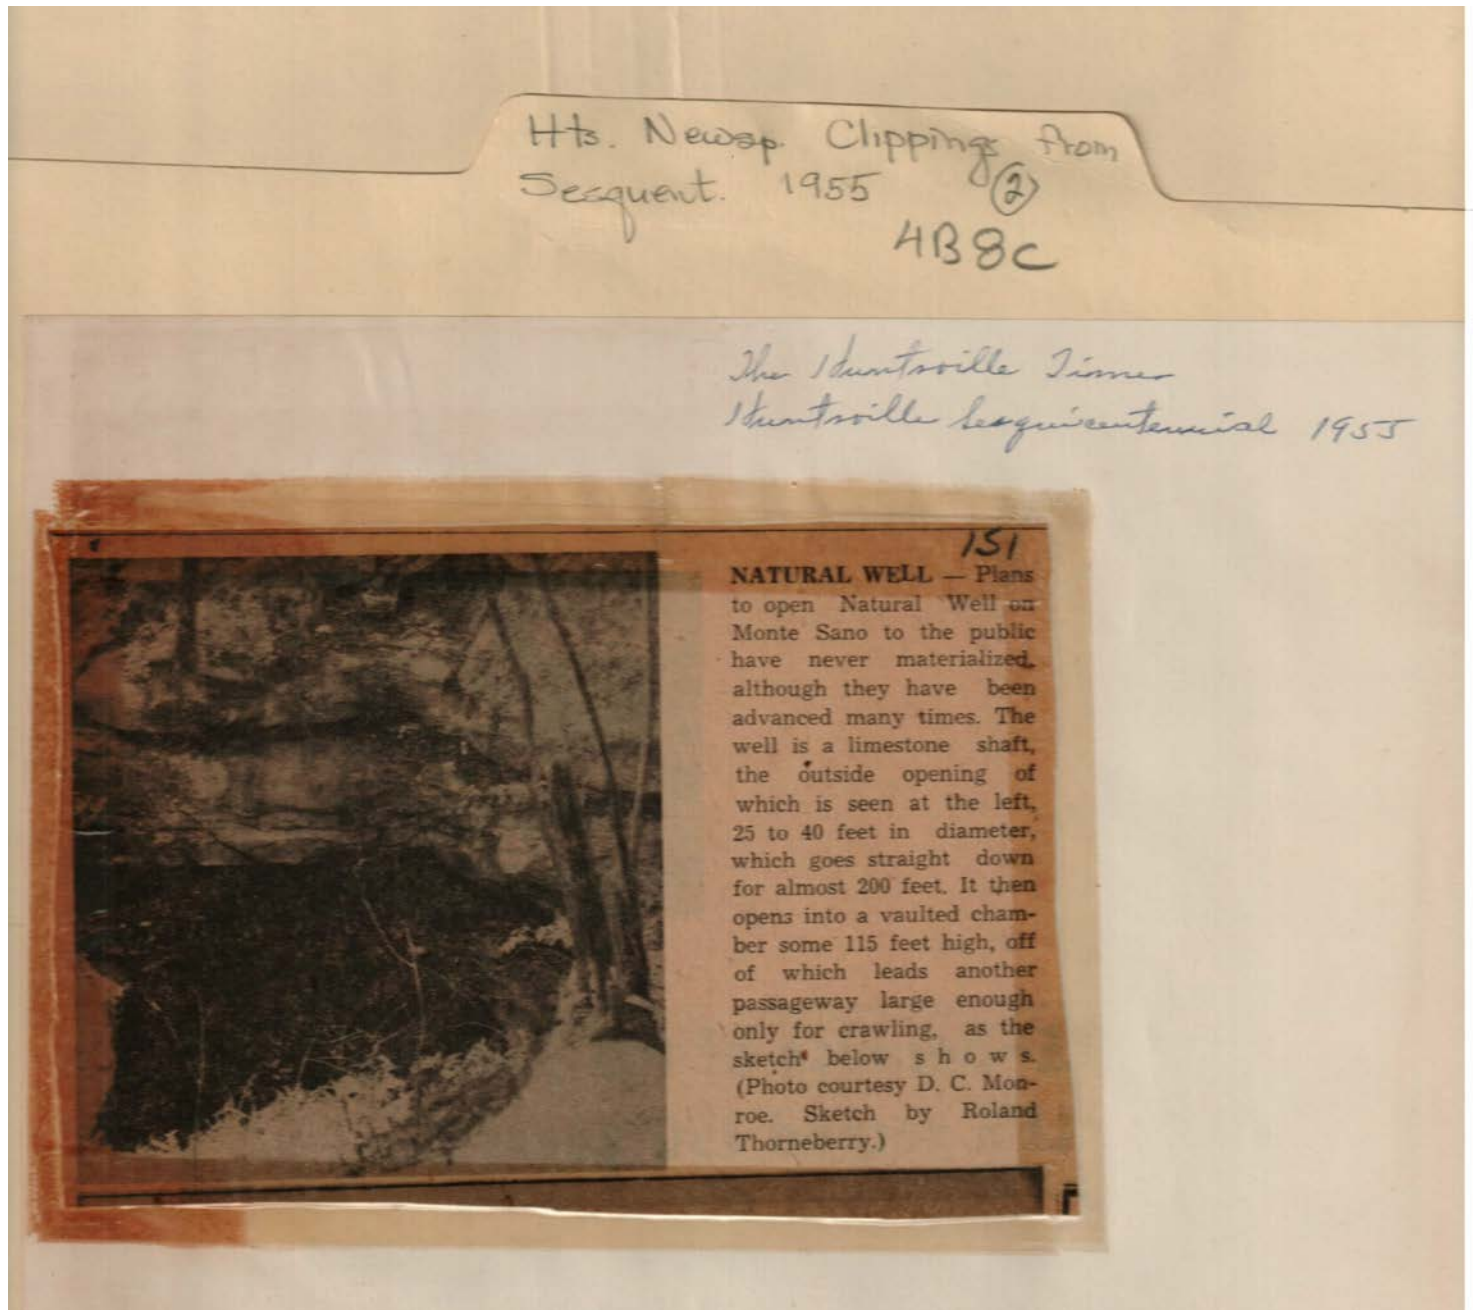 Hts. Newsp. Clippings from
Sesquent. 1955 2
4B8C
The Huntsville Times
Huntsville Sesquicentennial 1955
151
NATURAL WELL — Plans
to open Natural Well on
Monte Sano to the public
have never materialized,
although they have been
advanced many times. The
well is a limestone shaft,
the outside opening of
which is seen at the left,
25 to 40 feet in diameter,
which goes straight down
for almost 200 feet. It then
opens into a vaulted cham-
ber some 115 feet high, off
of which leads another
passageway large enough
only for crawling, as the
sketch below shows.
(Photo courtesy D. C. Mon-
roe. Sketch by Roland
Thorneberry.)